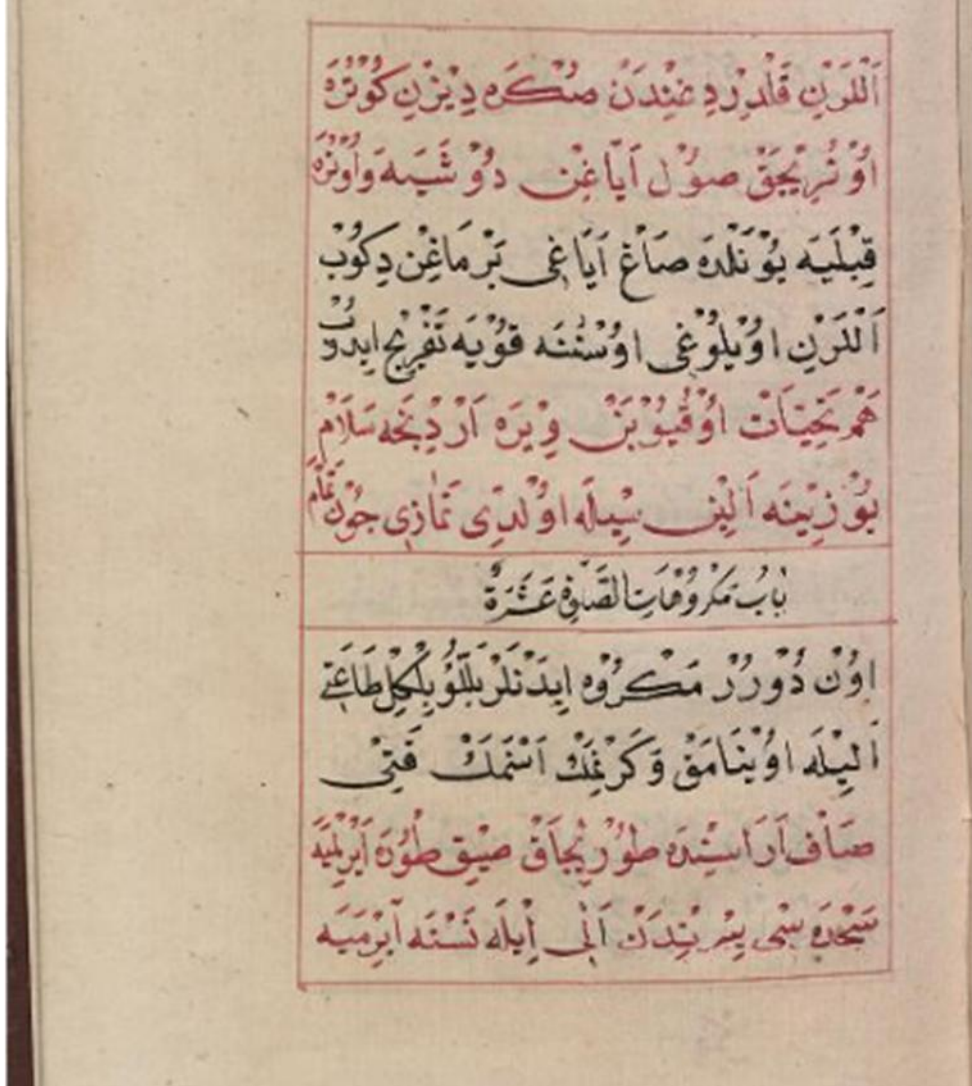 اَللَّرِنِ قَلْدِرْدِغِنْدَنْ صُكْرَه دِيْزْنِ كُوتُرَه
اُوتُرِيْجَقْ صُوْل اَيَاغِنِ دُوْشَيَه وَاُوتُرَه
قِبْلَيَه يُوْنَلْدَه صَاغْ اَيَاغِى بَرْمَاغِنْ دِكُوبْ
اَللَّرِنِ اُويْلُوغِى اُوسْتَنَه قُوْيَه تَفْرِيْج ايدُوبْ
هَمْ تَحِيَّاتْ اُوْقُيُوْبَنْ وِيْرَه اَرْدِنْجَه سَلَامْ
يُوْزِيْنَه اَلِيْنِ سِيْلَه اُوْلْدِى نَمَازِى چُوْن تَمَامْ
بَابُ مَكْرُوْهَاتِ الصَّلٰوةِ عَشَرَةٌ
اُوْن دُوْرُرْ مَكْرُوْه اِيدَنْلَرْ بَلّلُو بِلْكِل طَاعَتِ
اَلِيْلَه اُوْيْنَامَقْ وَكَرْنِمَكْ اَسْنَمَكْ قَتِى
صَاف اَرَاسِنْدَه طُوْرِيْجَاقْ صِيْق طُوْرَه اَيْرِلْمَيَه
سَجْدَه سِى يِيْرِنْدَنْ اَلِى اِيْلَه نَسْنَه اَيِرْمَيَه